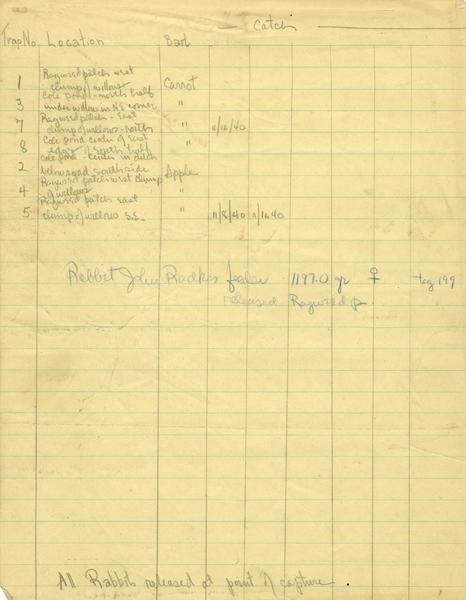 Catch
Trap No. Location Bait
1 Ragweed patch west
clump of willows Carrot
3 Cole pond - north half
under willow in N.E. corner "
7 Ragweed patch - East
clump of willows - north " 11/16/40
8 Cole pond center of East
edge of south half "
2 Cole pond - center in ditch
Willow road south side Apple
4 Ragweed patch west clump
of willows "
5 Ragweed patch east
clump of willows S.E. " 11/8/40 11/16/40
Rabbit John Radkes 1197.0 gr ♀ tag 199
released Ragweed p
All Rabbits released at point of capture.